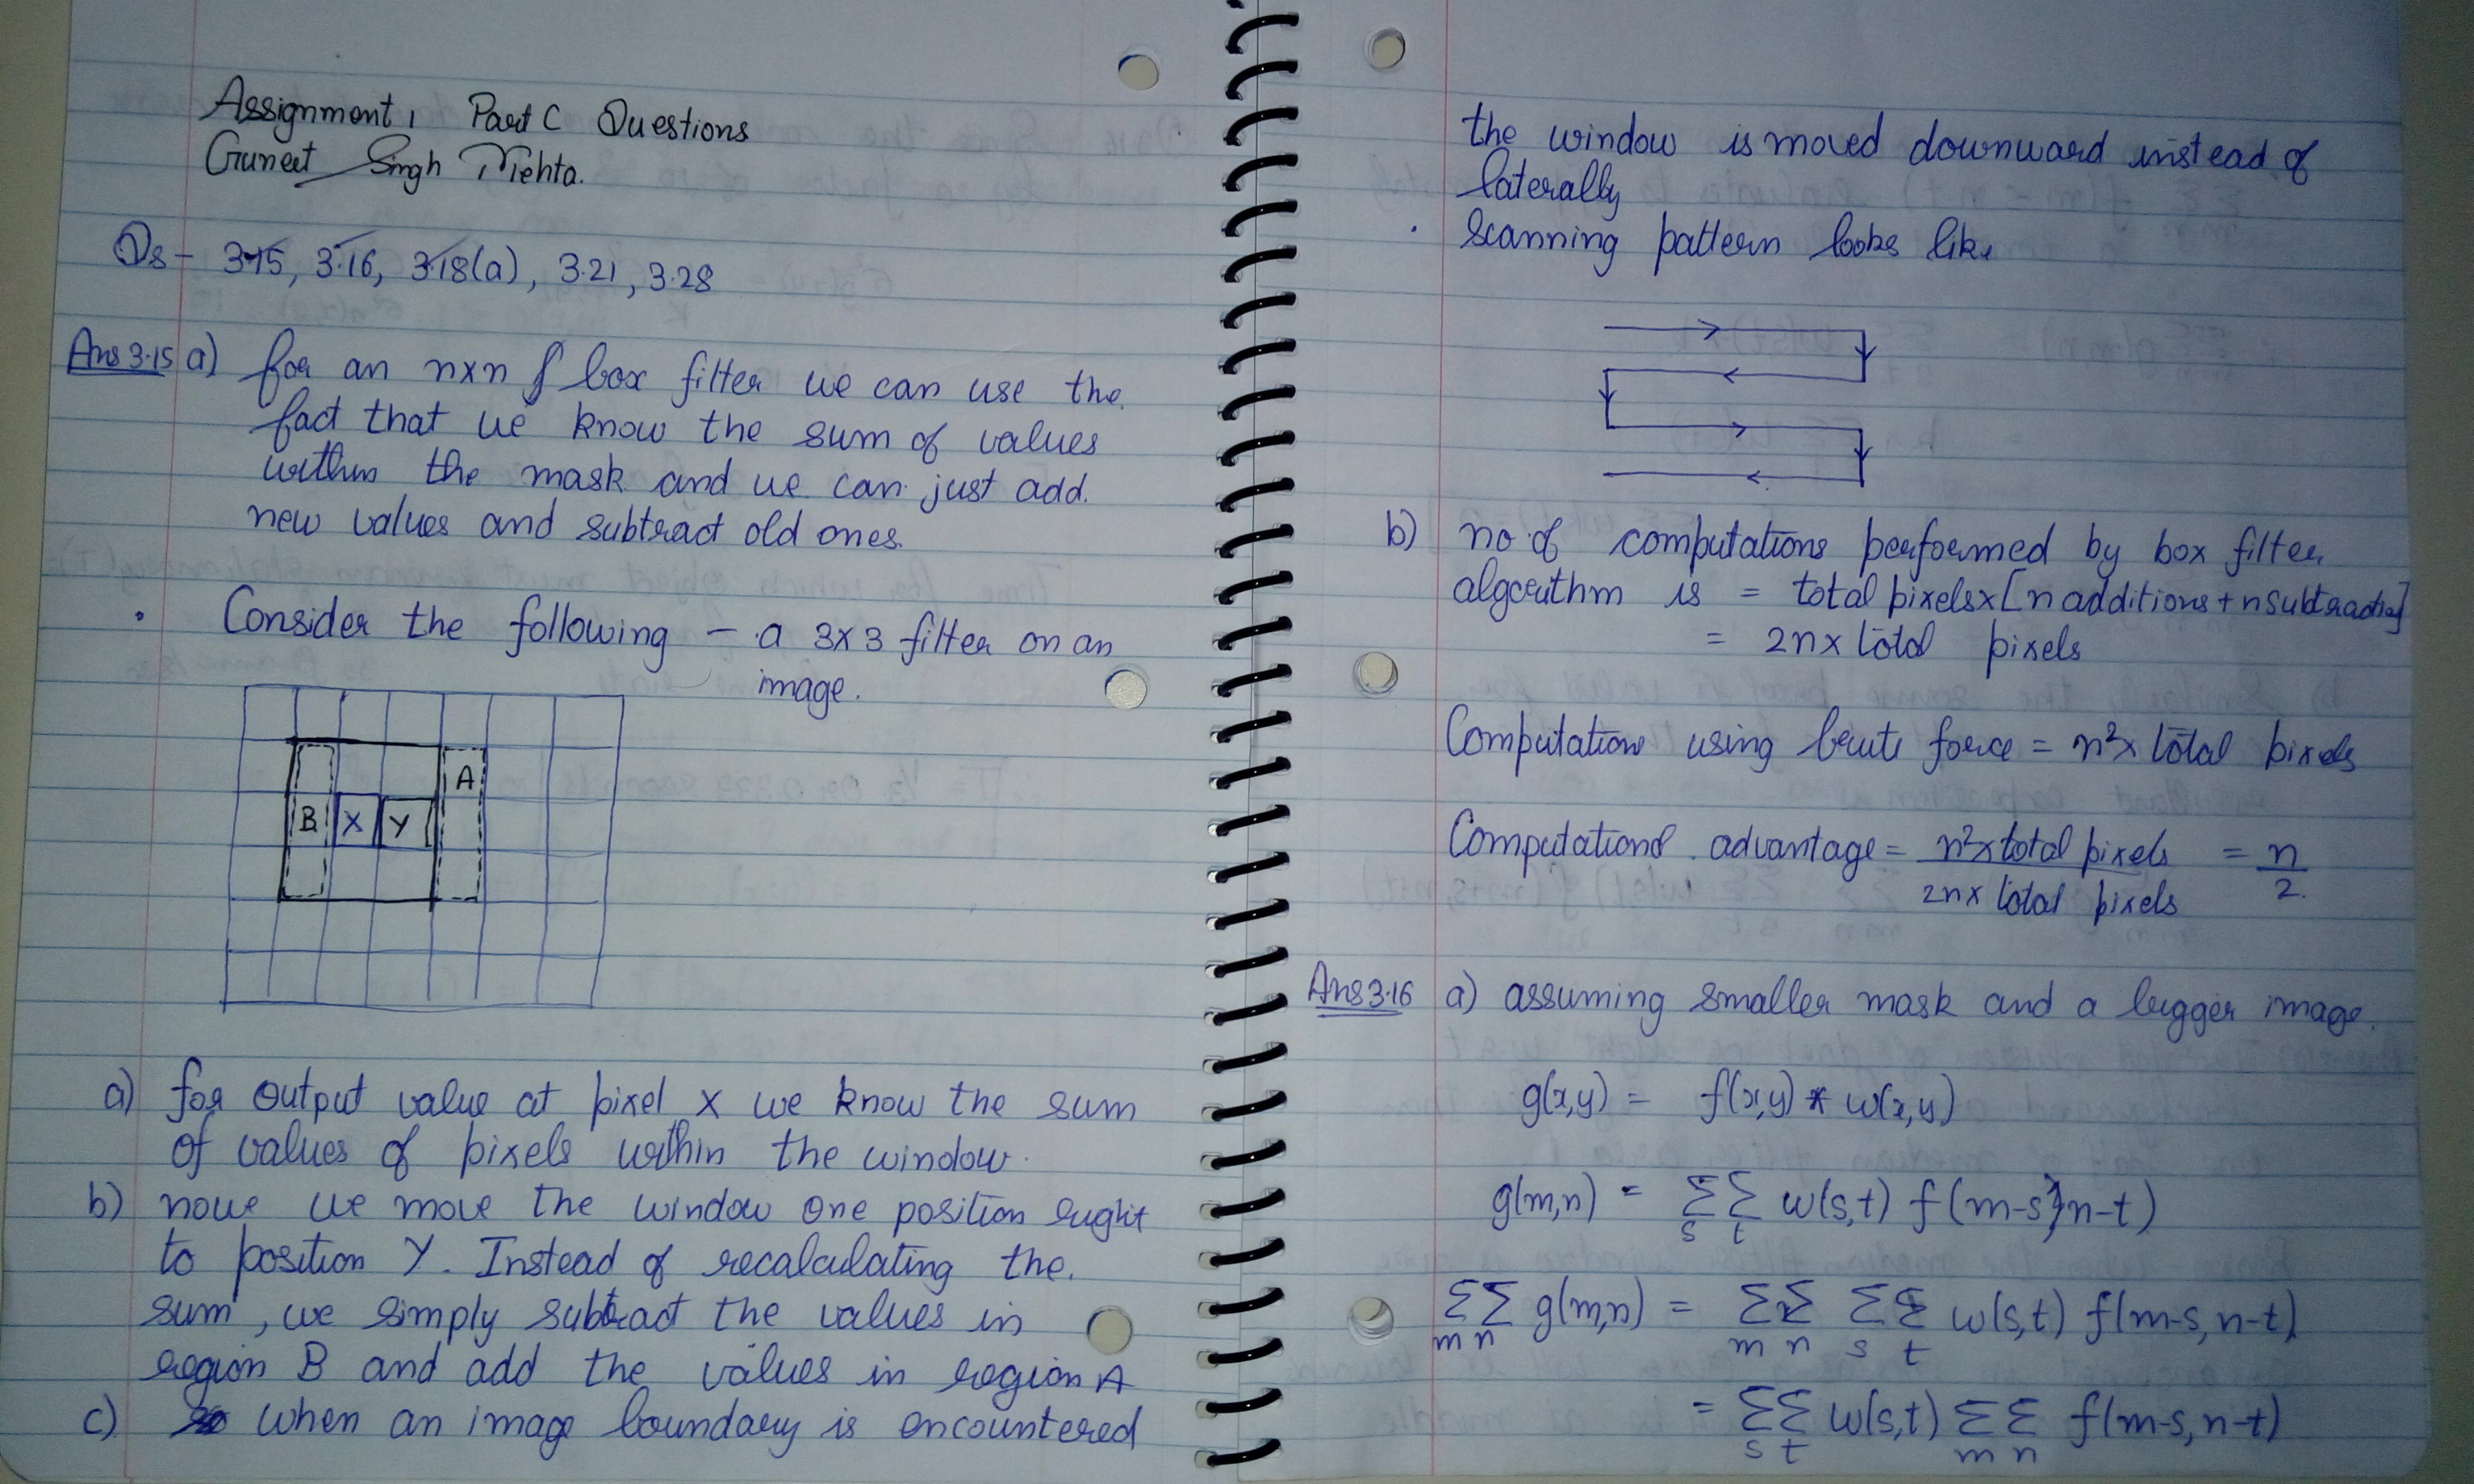 Assignment 1 Part C Questions
Guneet Singh Mehta.
Qs - 3.15, 3.16, 3.18(a), 3.21, 3.28
Ans 3.15 a) for an n×n box filter we can use the
fact that we know the sum of values
within the mask and we can just add
new values and subtract old ones.
• Consider the following - a 3×3 filter on an
image.
A
B X Y
a) for output value at pixel X we know the sum
of values of pixels within the window.
b) now we move the window one position right
to position Y. Instead of recalculating the
sum, we simply subtract the values in
region B and add the values in region A
c) when an image boundary is encountered
the window is moved downward instead of
laterally
• Scanning pattern looks like
b) no of computations performed by box filter
algorithm is = total pixels×[n additions + n subtraction]
= 2n× total pixels
Computation using brute force = n²× total pixels
Computational advantage = n²×total pixels / 2n× total pixels = n/2.
Ans 3.16 a) assuming smaller mask and a bigger image.
g(x,y) = f(x,y) * w(x,y)
g(m,n) = Σ_s Σ_t w(s,t) f(m-s, n-t)
Σ_m Σ_n g(m,n) = Σ_m Σ_n Σ_s Σ_t w(s,t) f(m-s, n-t)
= Σ_s Σ_t w(s,t) Σ_m Σ_n f(m-s, n-t)